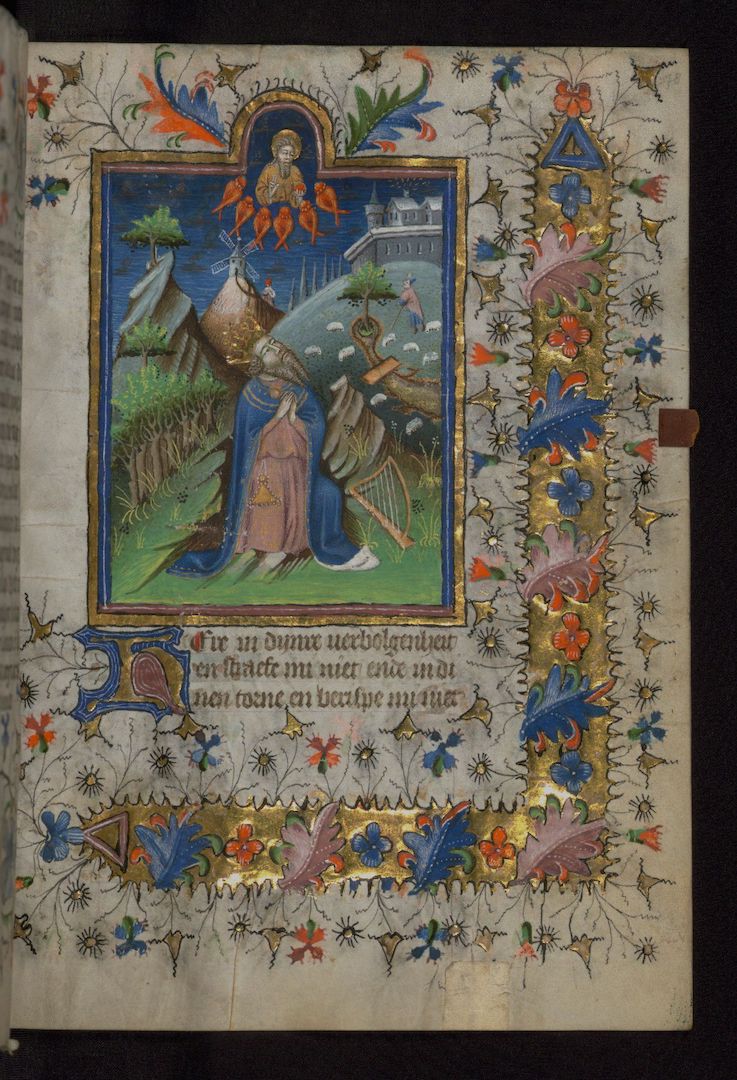 HEre in dijnre uerbolgenheit
en straefe mi niet ende in di
nen torne en berispe mi niet